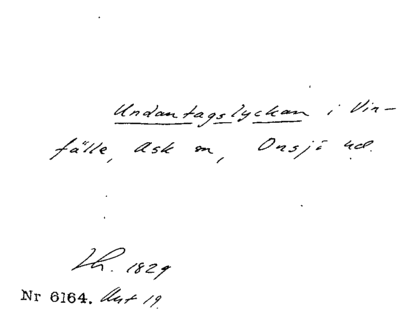 Undantagslyckan i Vin-
fälle, Ask sn, Onsjö hd.
Lh. 1829
Nr 6164. Aut 19.